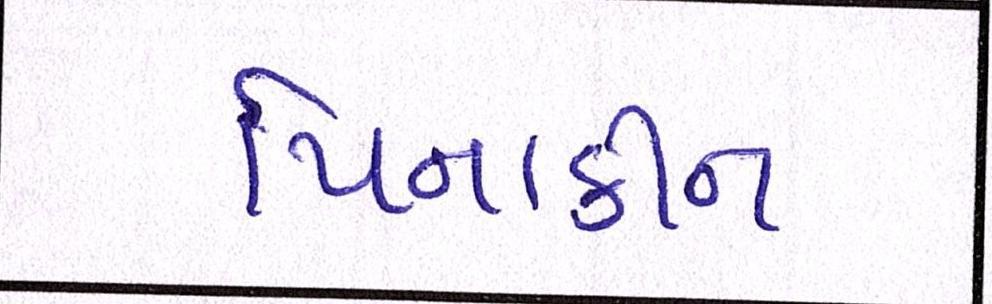 પિનાકીન